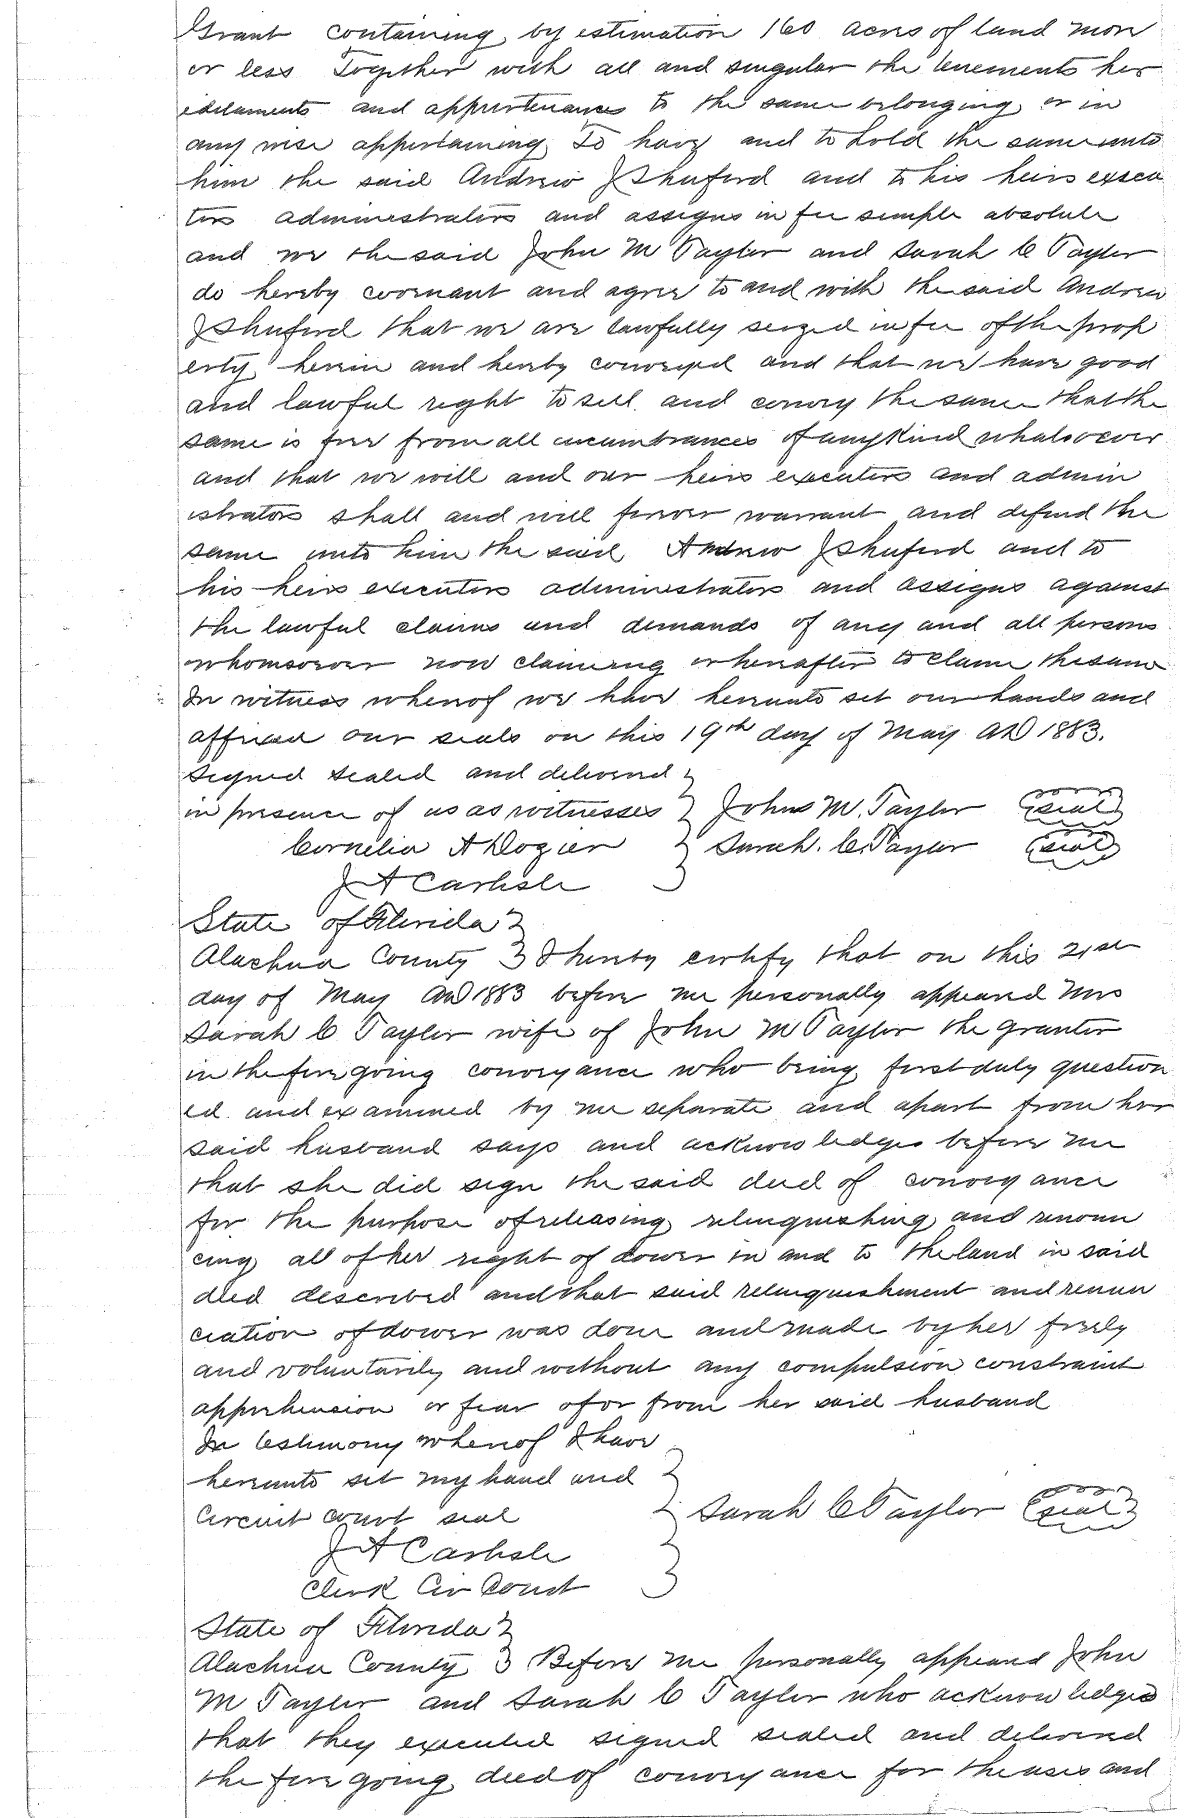 Grant containing by estimation 160 acres of land more
or less Together with all and singular the tenements her
editaments and appurtenances to the same belonging or in
any wise appertaining To have and to hold the same unto
him the said Andrew J Shuford and to his heirs execu
tors administrators and assigns in fee simple absolute
and we the said John M Taylor and Sarah C Taylor
do hereby covenant and agree to and with the said Andrew
J Shuford that we are lawfully seized in fee of the prop
erty herein and hereby conveyed and that we have good
and lawful right to sell and convey the same that the
same is free from all incumbrances of any kind whatsoever
and that we will and our heirs executors and admin
istrators shall and will forever warrant and defend the
same unto him the said Andrew J Shuford and to
his heirs executors administrators and assigns against
the lawful claims and demands of any and all persons
whomsoever now claiming or hereafter to claim the same
In witness whereof we have hereunto set our hands and
affixed our seals on this 19th day of May AD 1883.
Signed sealed and delivered }
in presence of us as witnesses } John M. Taylor (seal)
Cornelia A Dozier } Sarah. C. Taylor (seal)
J A Carlisle }
State of Florida }
Alachua County } I hereby certify that on this 21st
day of May AD 1883 before me personally appeared Mrs
Sarah C Taylor wife of John M Taylor the grantor
in the foregoing conveyance who being first duly question
ed and examined by me separate and apart from her
said husband says and acknowledges before me
that she did sign the said deed of conveyance
for the purpose of releasing relinquishing and renoun
cing all of her right of dower in and to the land in said
deed described and that said relinquishment and renun
ciation of dower was done and made by her freely
and voluntarily and without any compulsion constraint
apprehension or fear of or from her said husband
In testimony whereof I have
hereunto set my hand and }
Circuit court seal } Sarah C Taylor (seal)
J A Carlisle
Clerk Cir Court }
State of Florida }
Alachua County } Before me personally appeared John
M Taylor and Sarah C Taylor who acknowledges
that they executed signed sealed and delivered
the foregoing deed of conveyance for the uses and